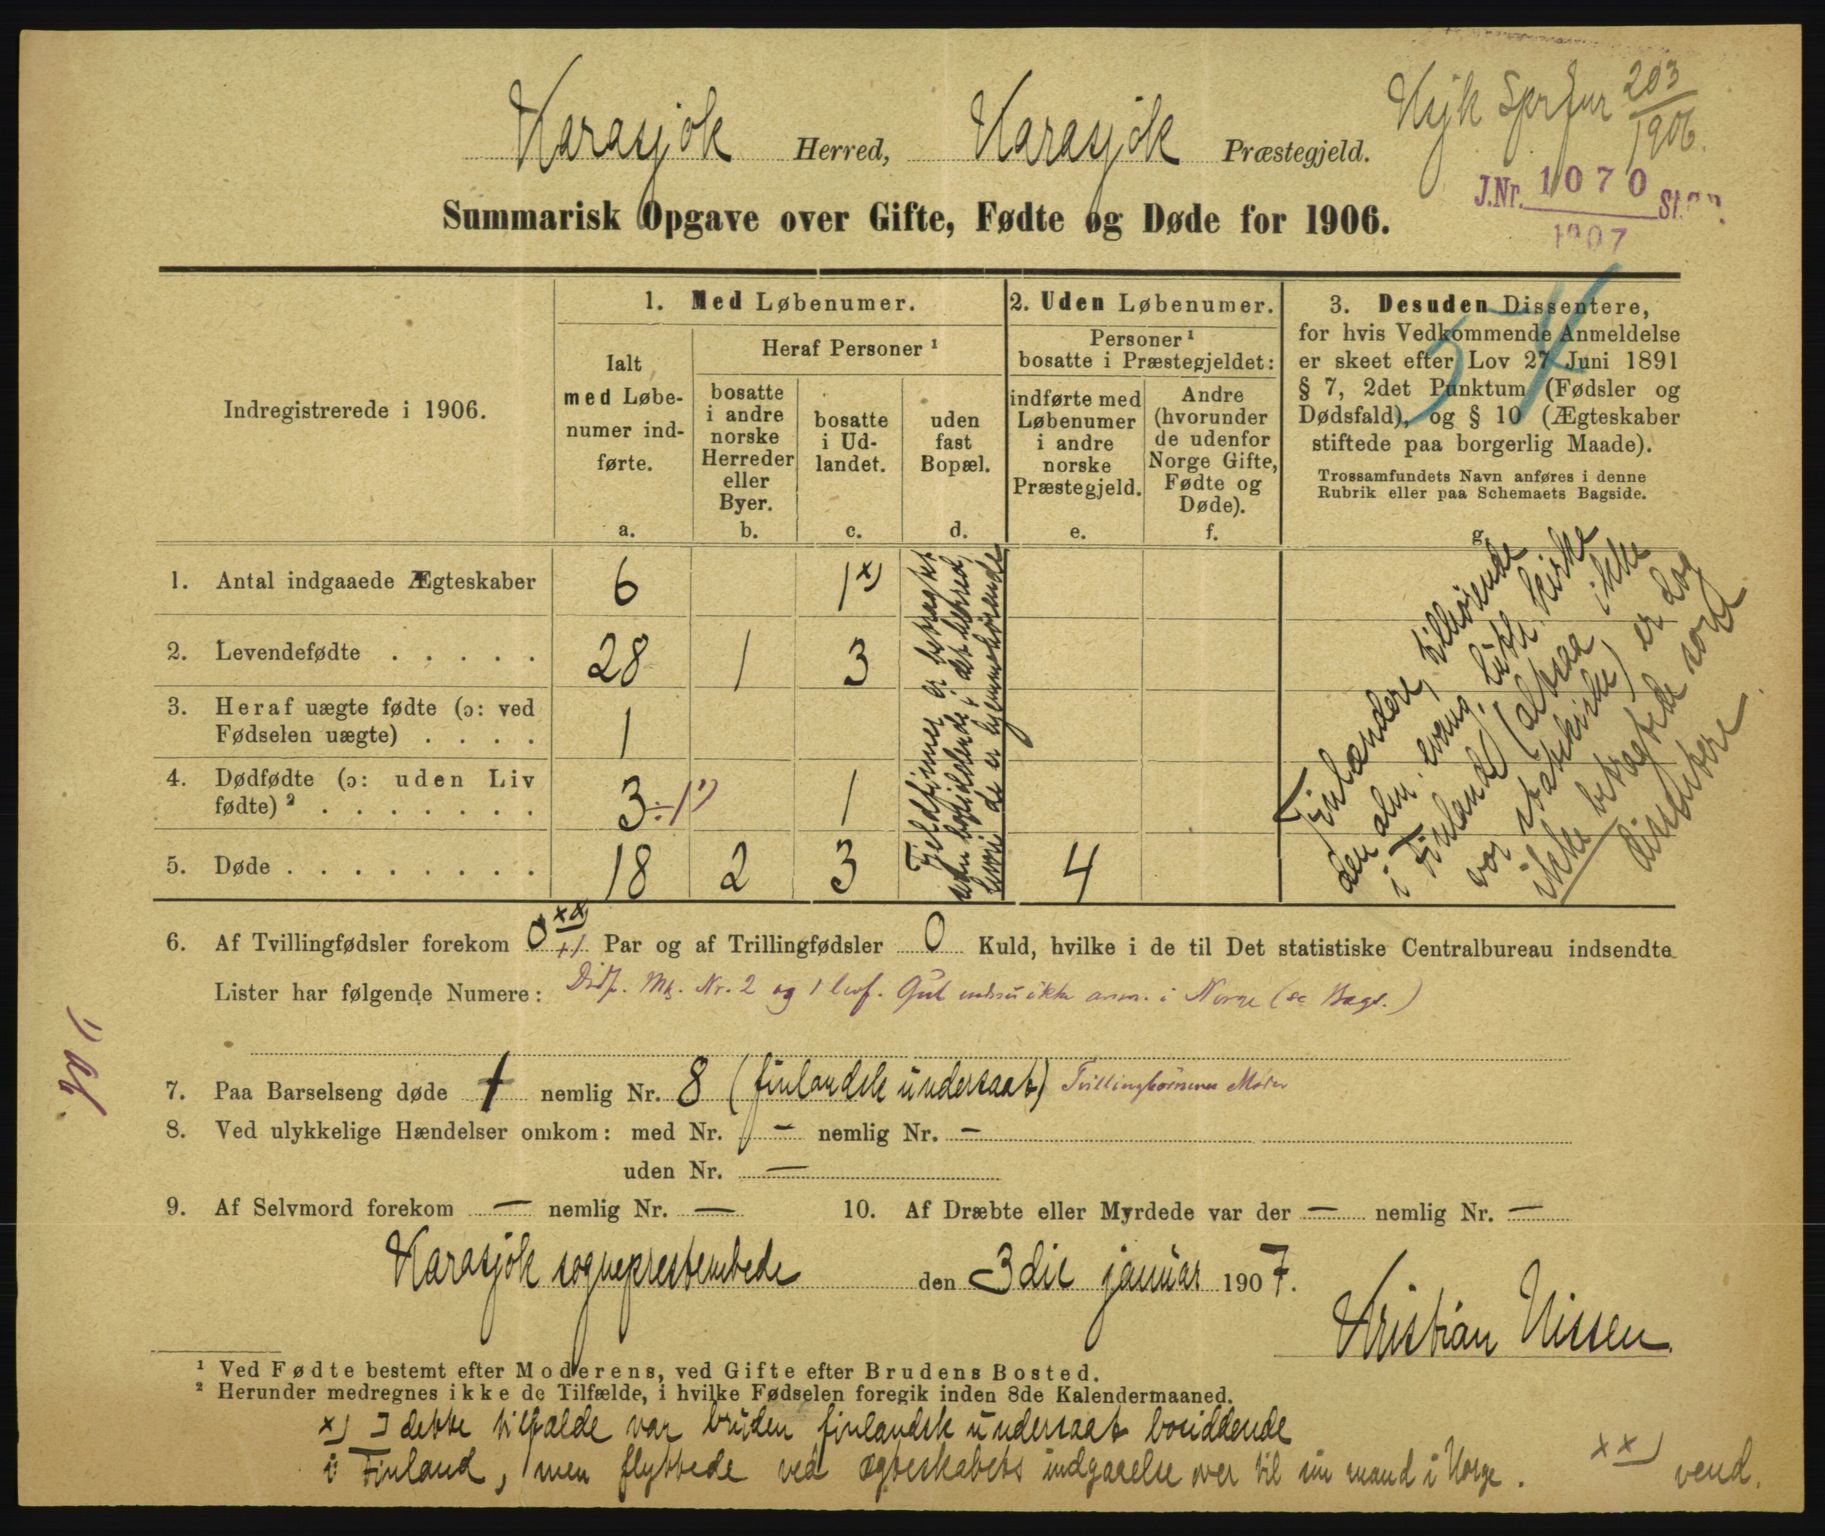 Karasjok Herred, Karasjok Præstegjeld.
203
1906.
J.Nr. 1070
1907
Summarisk Opgave over Gifte, Fødte og Døde for 1906.
Indregistrerede i 1906.
1. Med Løbenumer.
Ialt
med Løbe-
numer ind-
førte.
a.
Heraf Personer ¹
bosatte
i andre
norske
Herreder
eller
Byer.
b.
bosatte
i Ud-
landet.
c.
uden
fast
Bopæl.
d.
2. Uden Løbenumer.
Personer ¹
bosatte i Præstegjeldet:
indførte med
Løbenumer
i andre
norske
Præstegjeld.
e.
Andre
(hvorunder
de udenfor
Norge Gifte,
Fødte og
Døde).
f.
3. Desuden Dissentere,
for hvis Vedkommende Anmeldelse
er skeet efter Lov 27 Juni 1891
§ 7, 2det Punktum (Fødsler og
Dødsfald), og § 10 (Ægteskaber
stiftede paa borgerlig Maade).
Trossamfundets Navn anføres i denne
Rubrik eller paa Schemaets Bagside.
g.
1. Antal indgaaede Ægteskaber 6 1 x)
2. Levendefødte . . . . . 28 1 3
3. Heraf uægte fødte (ɔ: ved
Fødselen uægte) . . . . 1
4. Dødfødte (ɔ: uden Liv
fødte) ² . . . . . . . 3 ÷1 ¹) 1
5. Døde . . . . . . . . . 18 2 3 4
Fjeldfinner er betragtet
som bofiddende i det herred,
hvori de er hjemmehørende
Finlændere, tilhørende
den alm. evang. luth. kirke
i Finland (altsaa ikke
vor statskirke) er dog
ikke betragtede som
dissentere.
6. Af Tvillingfødsler forekom 0 xx) +1 Par og af Trillingfødsler 0 Kuld, hvilke i de til Det statistiske Centralbureau indsendte
Lister har følgende Numere: Dødf. Mk. Nr. 2 og 1 lev. ikke anm. i Norge (se Bags.)
7. Paa Barselseng døde 1 nemlig Nr. 8 (finlandsk undersaat) Tvillingbørnenes Moder
8. Ved ulykkelige Hændelser omkom: med Nr. — nemlig Nr. —
uden Nr. —
9. Af Selvmord forekom — nemlig Nr. — 10. Af Dræbte eller Myrdede var der — nemlig Nr. —
Karasjok sogneprestembede den 3die januar 1907.
Kristian Nissen
¹ Ved Fødte bestemt efter Moderens, ved Gifte efter Brudens Bosted.
² Herunder medregnes ikke de Tilfælde, i hvilke Fødselen foregik inden 8de Kalendermaaned.
x) I dette tilfælde var bruden finlandsk undersaat bosiddende
i Finland, men flyttede ved ægteskabets indgaaelse over til sin mand i Norge. xx) vend.